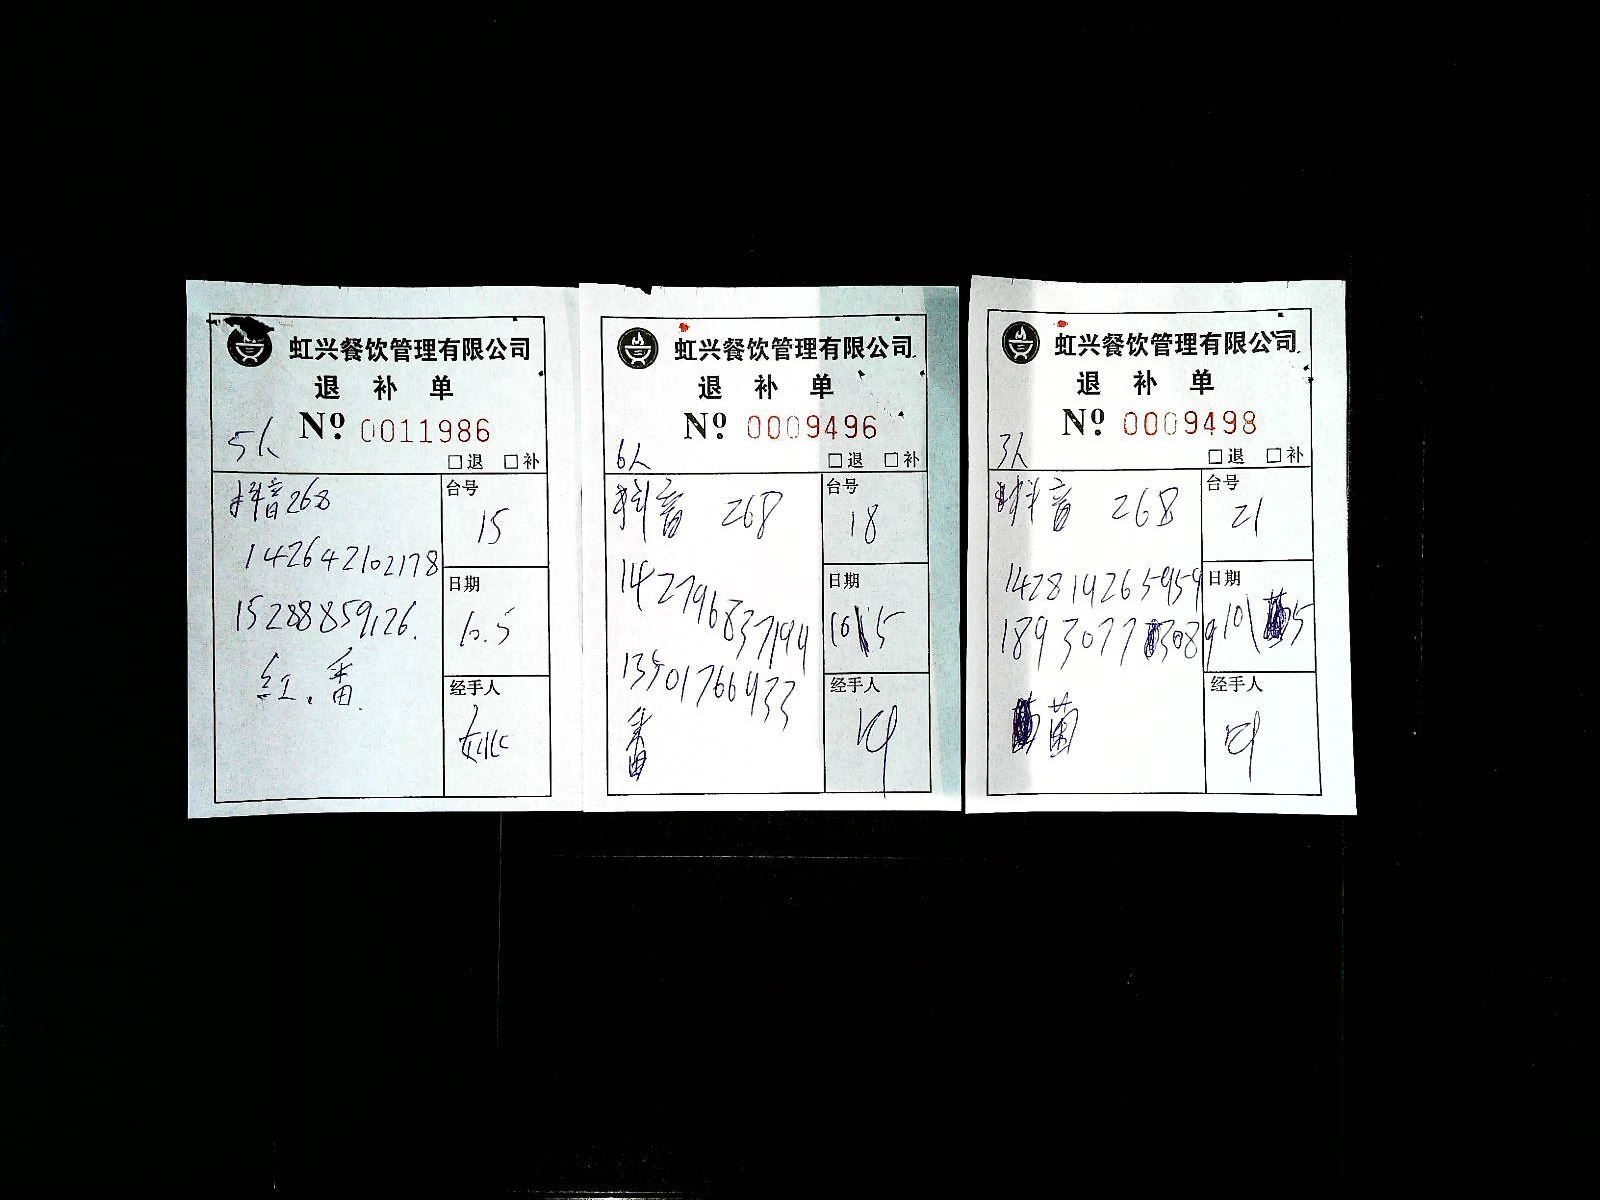 虹兴餐饮管理有限公司
退 补 单
Nº 0011986
5人
□退 □补
抖音268
142642102178
15288859126.
红.番.
台号
15
日期
10.5
经手人
虹兴餐饮管理有限公司
退 补 单
Nº 0009496
6人
□退 □补
抖音 268
142796837194
13501766433
番
台号
18
日期
10\5
经手人
虹兴餐饮管理有限公司
退 补 单
Nº 0009498
3人
□退 □补
抖音 268
142814265959
18930773089
菌
台号
21
日期
10\5
经手人